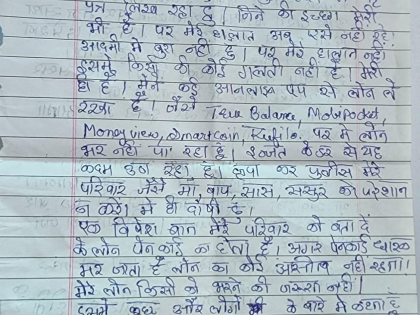 पत्र लिख रहा हूं। जिने की इच्छा मेरी
भी है। पर मेरे हालात अब ऐसे नही रहे।
आदमी मे बुरा नही हु। पर मेरे हालात नही
इसमे किसी की कोई गलती नही है। मेरी
ही है। मैंने कई आनलाइन एप से लोन ले
रखा है। जैसे True Balance, MobiPocket,
Moneyview, Smartcoin, Rufilo. पर मे लोन
भर नही पा रहा हूं। इज्जत के डर से यह
कदम उठा रहा हूं। कृपा कर पुलीस मेरे
परिवार जैसे मा, बाप, सास, ससुर को परेशान
न करे। मे ही दोषी हूं।
एक विशेष बात मेरे परिवार को बता दे
के लोन पेनकार्ड का होता है। अगर पेनकार्ड धारक
मर जाता है लोन का कोई अस्तीत्व नही रहता।
मेरे लोन किसी को भरने की जरुरत नही।
कुछ और लोगो के बारे मे कहना है